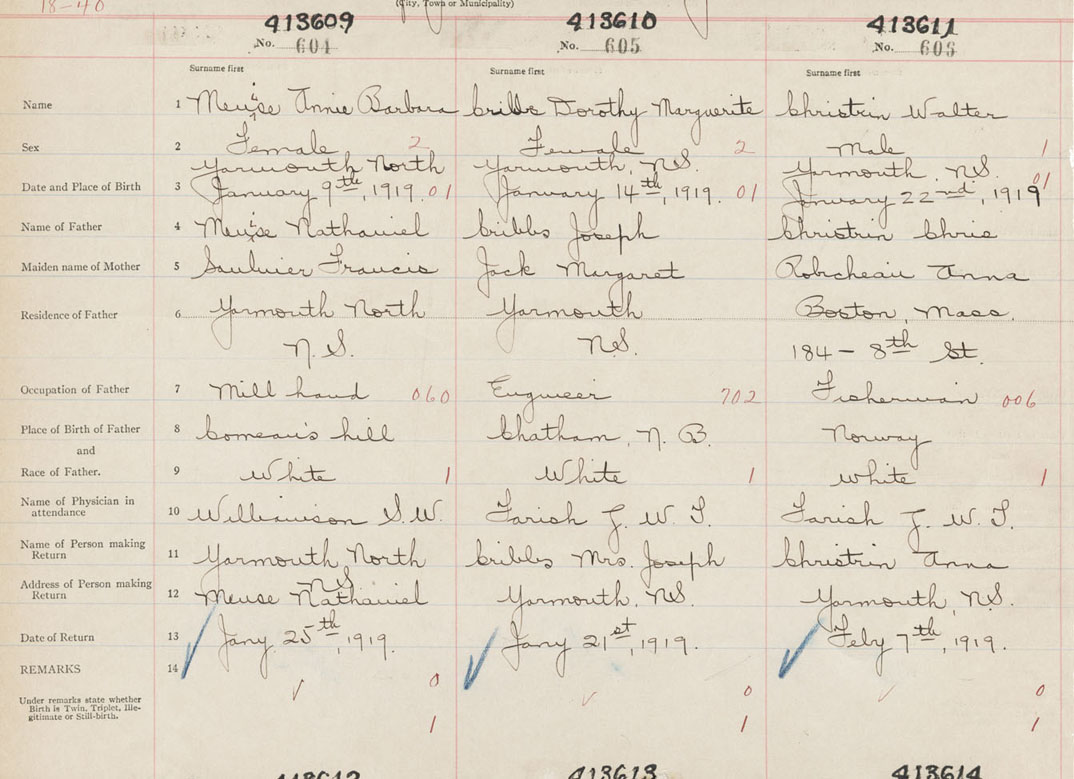 18-40
(City, Town or Municipality)
413609 413610 413611
No. 604 No. 605 No. 606
Surname first Surname first Surname first
Name 1 Meuise Annie Barbara Cribbs Dorothy Marguerite Christrin Walter
Sex 2 Female 2 Female 2 Male 1
Yarmouth North Yarmouth, N.S. Yarmouth, N.S.
Date and Place of Birth 3 January 9th, 1919. 01 January 14th, 1919. 01 January 22nd, 1919 01
Name of Father 4 Meuise Nathaniel Cribbs Joseph Christrin Chris
Maiden name of Mother 5 Saulnier Francis Jack Margaret Robicheau Anna
Residence of Father 6 Yarmouth North Yarmouth Boston, Mass.
N.S. N.S. 184 - 8th St.
Occupation of Father 7 Mill hand 060 Engineer 702 Fisherman 006
Place of Birth of Father 8 Comeau's hill Chatham, N.B. Norway
and
Race of Father. 9 White 1 White 1 White 1
Name of Physician in
attendance 10 Williamson S.W. Farish J. W. T. Farish J. W. T.
Name of Person making
Return 11 Yarmouth North Cribbs Mrs. Joseph Christrin Anna
N.S.
Address of Person making
Return 12 Meuse Nathaniel Yarmouth, N.S. Yarmouth, N.S.
Date of Return 13 Jany 25th, 1919. Jany 21st, 1919. Feby 7th, 1919.
REMARKS 14
0 0 0
Under remarks state whether
Birth is Twin, Triplet, Ille-
gitimate or Still-birth.
1 1 1
413612 413613 413614